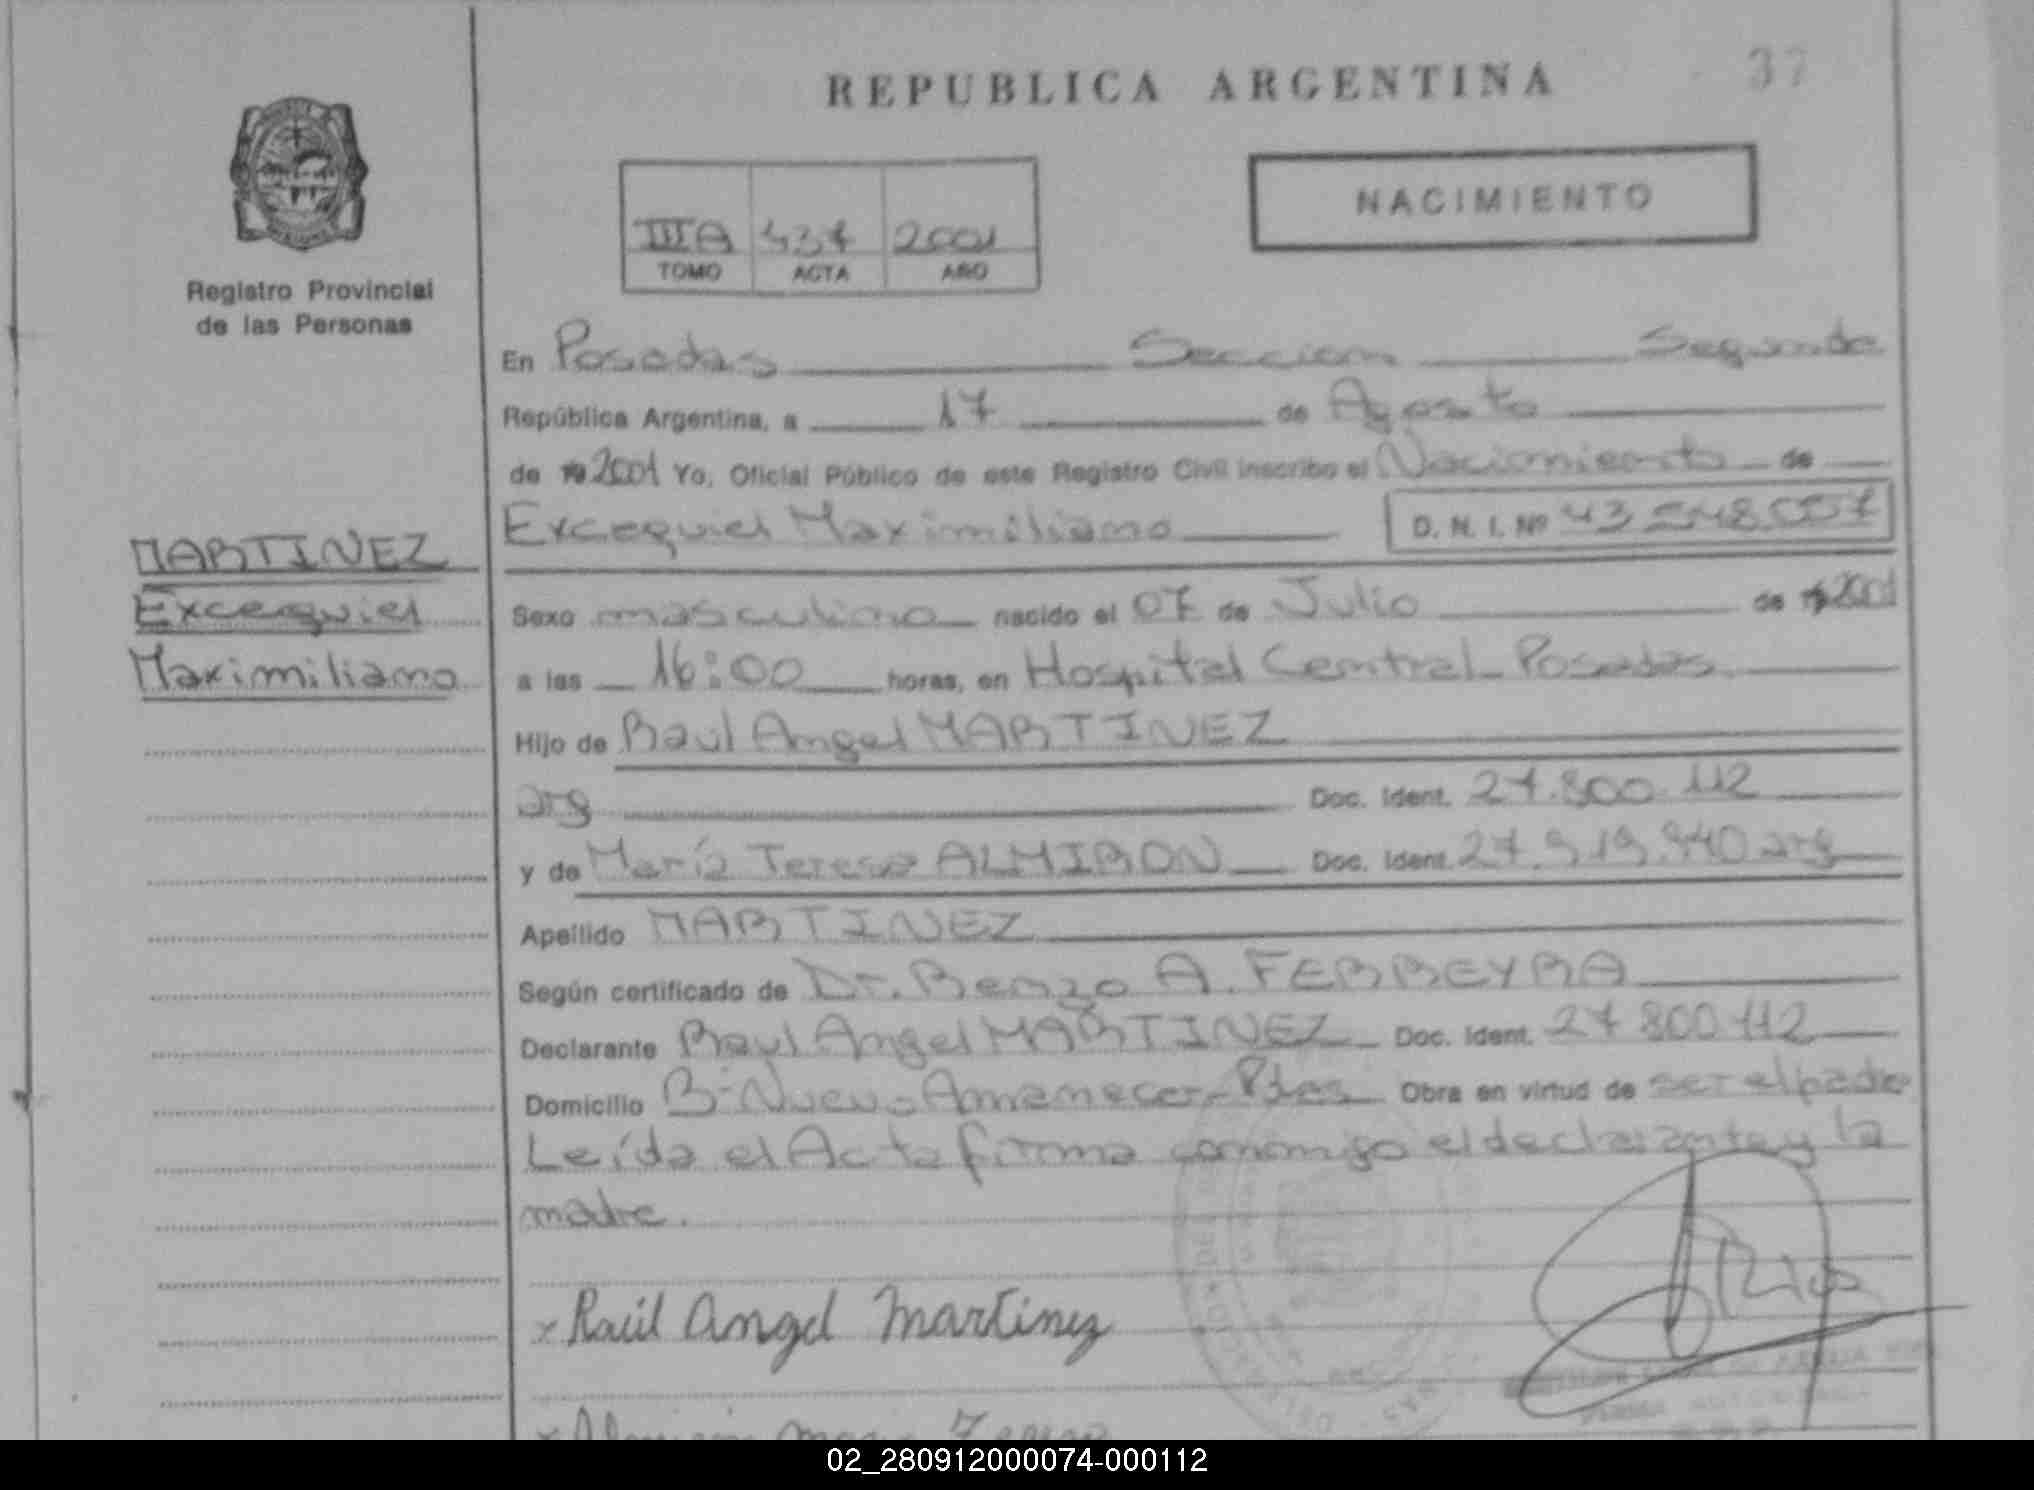 REPUBLICA ARGENTINA
37
NACIMIENTO
IIIA 437 2001
TOMO ACTA AÑO
Registro Provincial
de las Personas
En Posadas Seccion Segunda
República Argentina, a 17 de Agosto
de 2001 Yo, Oficial Público de este Registro Civil inscribo el Nacimiento de
Excequiel Maximiliano D. N. I. Nº
MARTINEZ
Excequiel
Maximiliano
Sexo masculino nacido el 07 de Julio de 2001
a las 16:00 horas, en Hospital Central Posadas
Hijo de Raul Angel MARTINEZ
arg Doc. Ident. 27.800.112
y de María Teresa ALMIRON Doc. Ident. arg
Apellido MARTINEZ
Según certificado de Dr. Renzo A. FERREYRA
Declarante Raul Angel MARTINEZ Doc. Ident. 27 800 112
Domicilio B- Nuevo Amanecer- Pdas Obra en virtud de ser el padre
Leída el Acta firma conmigo el declarante y la
madre.
x Raúl Angel Martinez
02_280912000074-000112